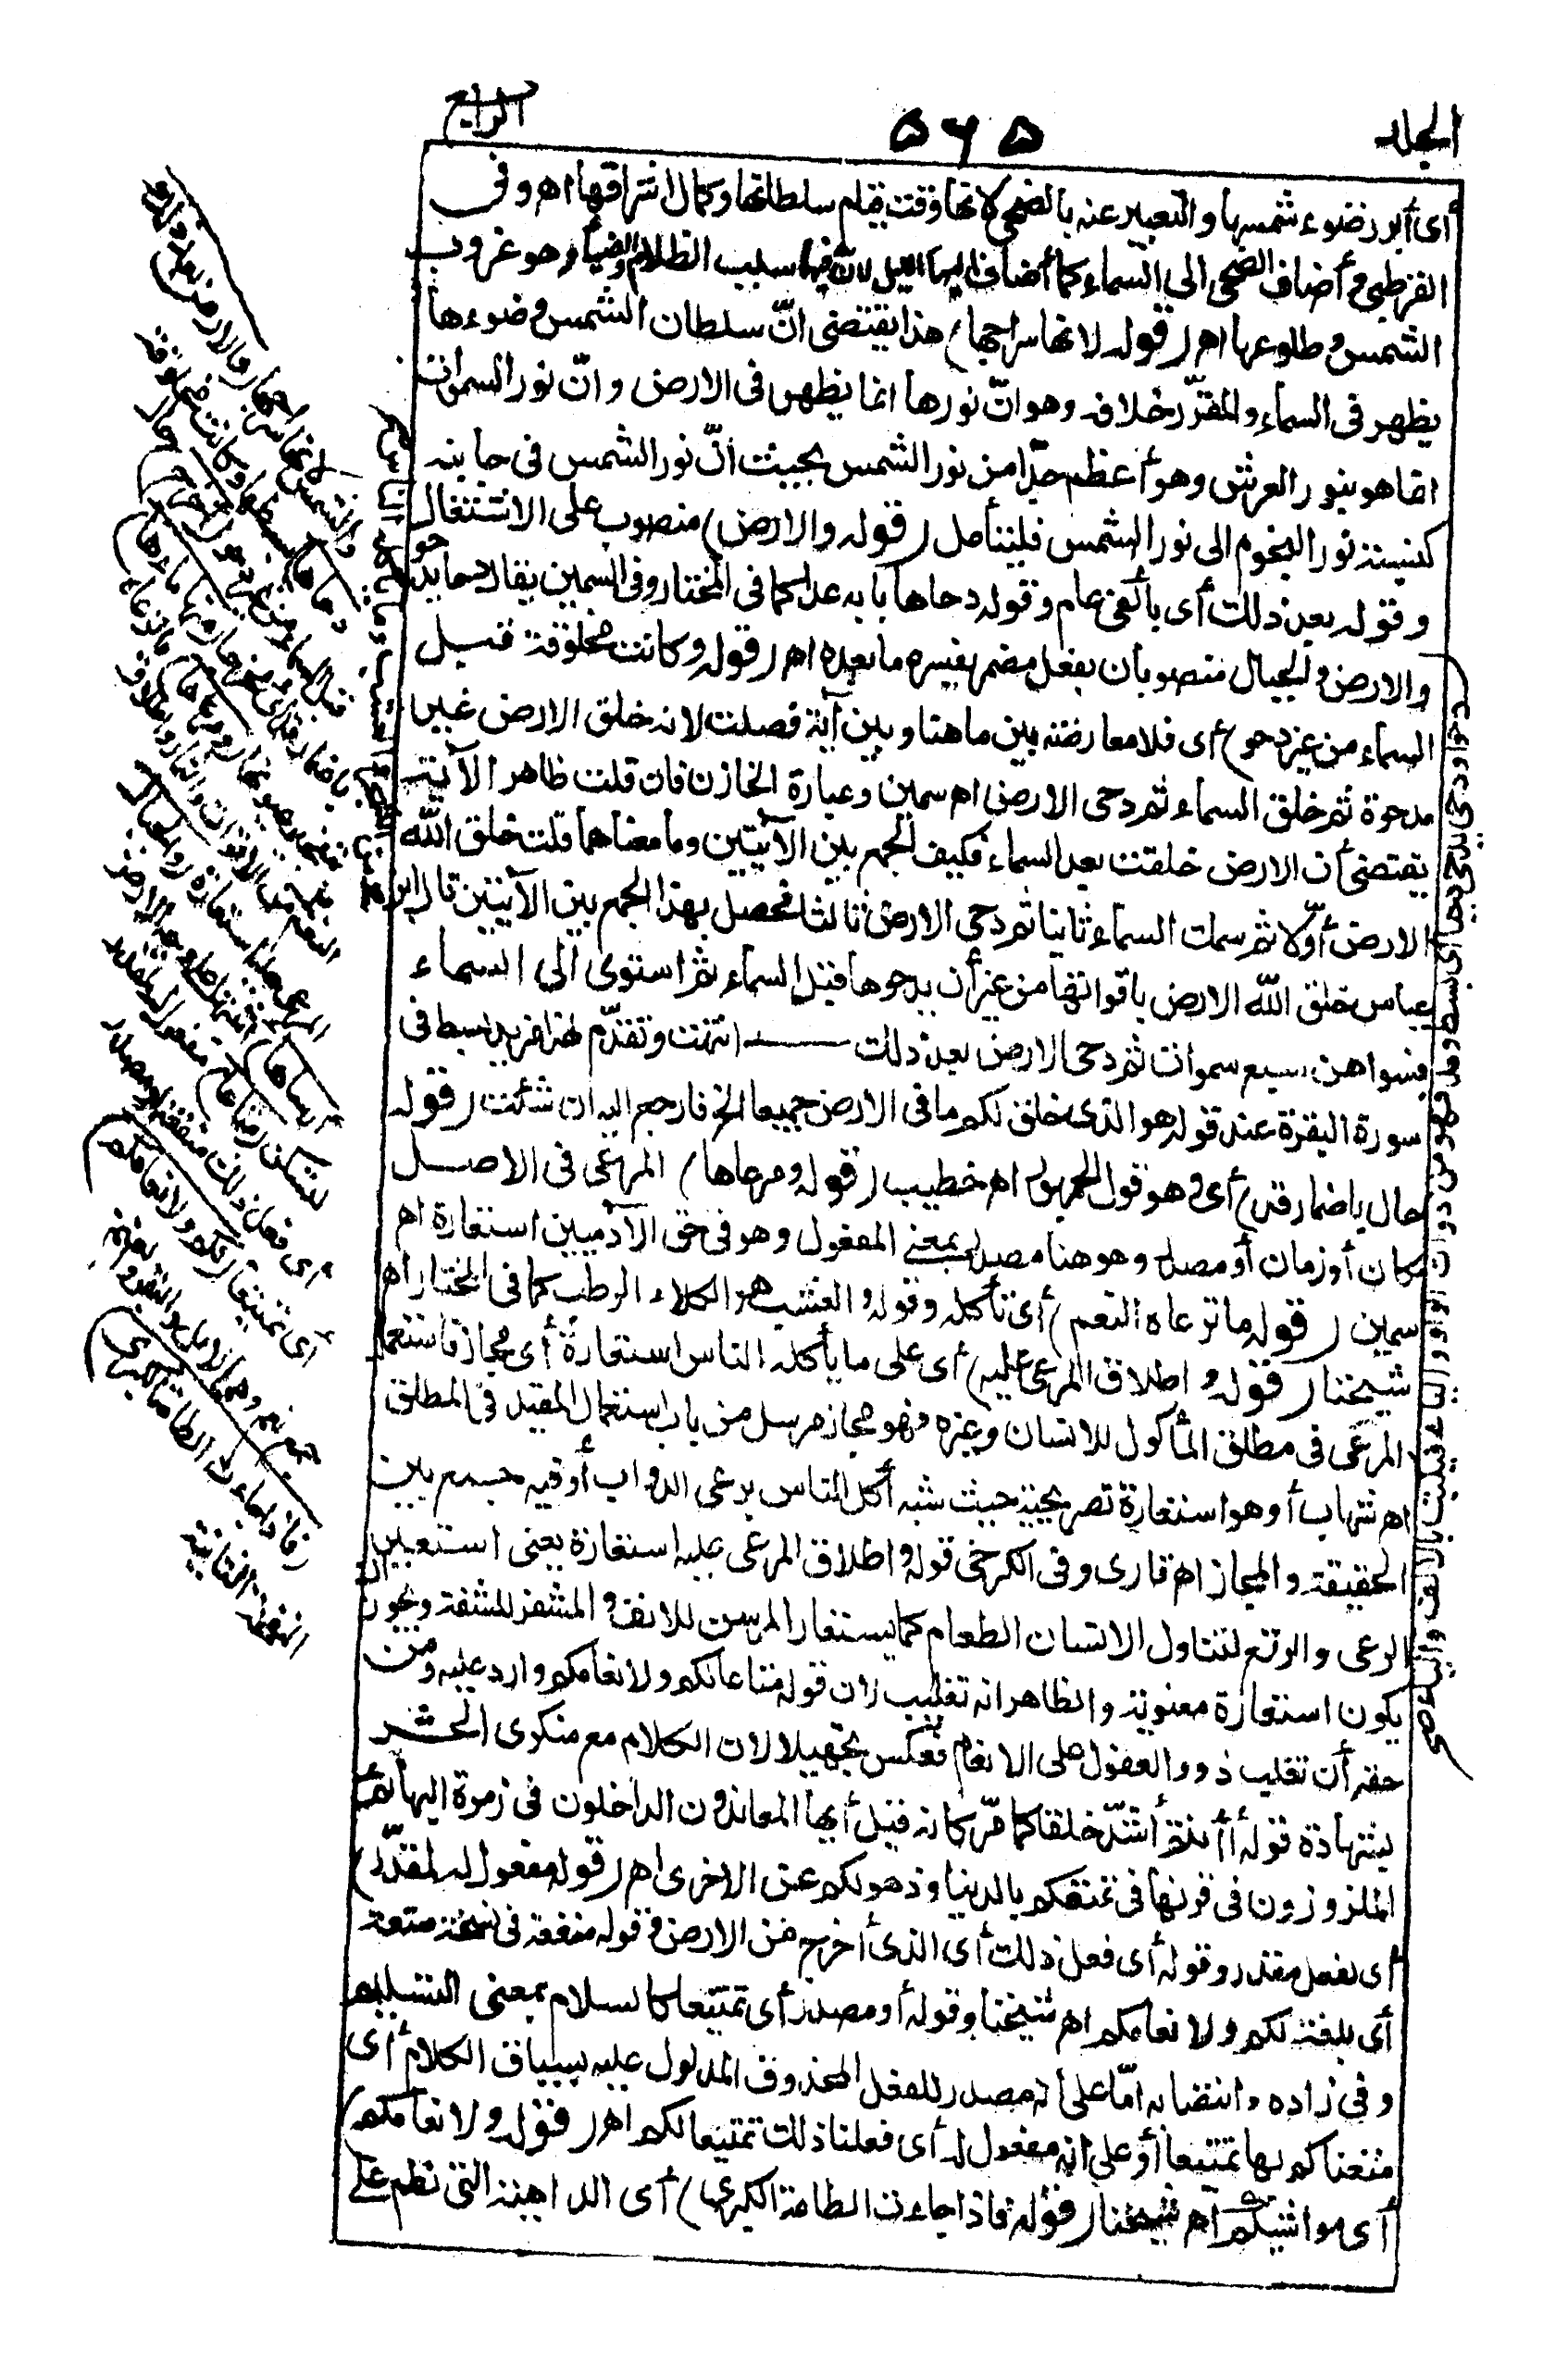 الجلد
۵۶۵
الرابع
أى أبرز ضوء شمسها والتعبير عنه بالضحى لانها وقت قيام سلطانها وكمال اشراقها اھ وفى
القرطبى وأضاف الضحى الى السماء كما أضاف اليها الليل لان فيها سبب الظلام والضياء وهو غروب
الشمس وطلوعها اھ (قوله لانها سراجها) هذا يقتضى انّ سلطان الشمس وضوءها
يظهر فى السماء والمقرّر خلافه وهو انّ نورها انما يظهر فى الارض وانّ نور السموات
انما هو بنور العرش وهو أعظم جدّا من نور الشمس بحيث انّ نور الشمس فى جانبه
كنسبة نور النجوم الى نور الشمس فليتأمل (قوله والارض) منصوب على الاشتغال
وقوله بعد ذلك أى بألفى عام وقوله دحاها بابه عدا كما فى المختار وفى السمين يقال دحا يدحو
والارض والجبال منصوبان بفعل مضمر يفسره ما بعده اھ (قوله وكانت مخلوقة قبل
السماء من غير دحو) أى فلا معارضة بين ما هنا وبين آية فصلت لانه خلق الارض غير
مدحوة ثم خلق السماء ثم دحى الارض اھ سمين وعبارة الخازن فان قلت ظاهر الآية
يقتضى أن الارض خلقت بعد السماء فكيف الجمع بين الآيتين وما معناهما قلت خلق الله
الارض أوّلا ثم سمك السماء ثانيا ثم دحى الارض ثالثا فحصل بهذا الجمع بين الآيتين قال ابن
عباس خلق الله الارض باقواتها من غير أن يدحوها قبل السماء ثم استوى الى السماء
فسواهن سبع سموات ثم دحى الارض بعد ذلك انتهت وتقدّم لهذا مزيد بسط فى
سورة البقرة عند قوله هو الذى خلق لكم ما فى الارض جميعا الخ فارجع اليه ان شئت (قوله
حال باضمار قد) أى وهو قول الجمهور اھ خطيب (قوله ومرعاها) المرعى فى الاصل
مكان أو زمان أو مصدر وهو هنا مصدر بمعنى المفعول وهو فى حق الآدميين استعارة اھ
سمين (قوله ما ترعاه النعم) أى تأكله وقوله والعشب هو الكلاء الرطب كما فى المختار اھ
شيخنا (قوله واطلاق المرعى عليه) أى على ما يأكله الناس استعارة أى مجاز فاستعمل
المرعى فى مطلق المأكول للانسان وغيره فهو مجاز مرسل من باب استعمال المقيد فى المطلق
اھ شهاب أو هو استعارة تصريحية حيث شبه أكل الناس برعى الدواب أو فيه جمع بين
الحقيقة والمجاز اھ قارى وفى الكرخى قوله واطلاق المرعى عليه استعارة يعنى استعير
الرعى والرتع لتناول الانسان الطعام كما يستعار المرسن للانف والمشفر للشفة ويجوز أن
يكون استعارة معنوية والظاهر انه تغليب لان قوله متاعا لكم ولانعامكم وارد عليه ومن
حقه أن تغليب ذوو العقول على الانعام فعكس تجهيلا لان الكلام مع منكرى الحشر
بشهادة قوله أأنتم أشدّ خلقا كما مرّ كانه قيل أيها المعاندون الداخلون فى زمرة البهائم
الملزوزون فى قرنها فى تمتعكم بالدنيا وذهولكم عن الاخرى اھ (قوله مفعول له لمقدّر)
أى لفعل مقدر وقوله أى فعل ذلك أى الذى أخرج من الارض وقوله منفعة فى نسخة متعة
أى بلغة لكم ولانعامكم اھ شيخنا وقوله أو مصدر أى تمتيعا كالسلام بمعنى التسليم
وفى زاده وانتصابه امّا على أنه مصدر للفعل المحذوف المدلول عليه بسياق الكلام أى
متعناكم بها تمتيعا أو على انه مفعول له أى فعلنا ذلك تمتيعا لكم اھ (قوله ولانعامكم)
أى مواشيكم اھ شيخنا (قوله فاذا جاءت الطامة الكبرى) أى الداهية التى تطم على
والارض بعد ذلك
دحاها) بسطها وكانت مخلوقة
قبل السماء من غير دحو (أخرج) حال
باضمار قد أى مخرجا (منها ماءها
ومرعاها)
(والجبال
أرساها)
(متاعا) مفعول له لمقدر
أى فعل ذلك متعة أو مصدر
أى تمتيعا (لكم ولانعامكم)
جمع نعم وهى الابل والبقر والغنم
(فاذا جاءت الطامة الكبرى)
النفخة الثانية